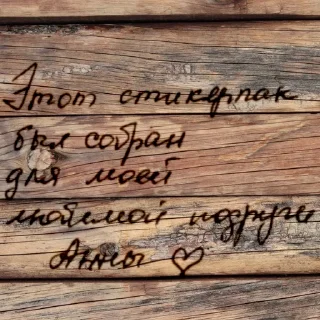 Этот стикерпак
был собран
для моей
любимой подруги
Анны ♡